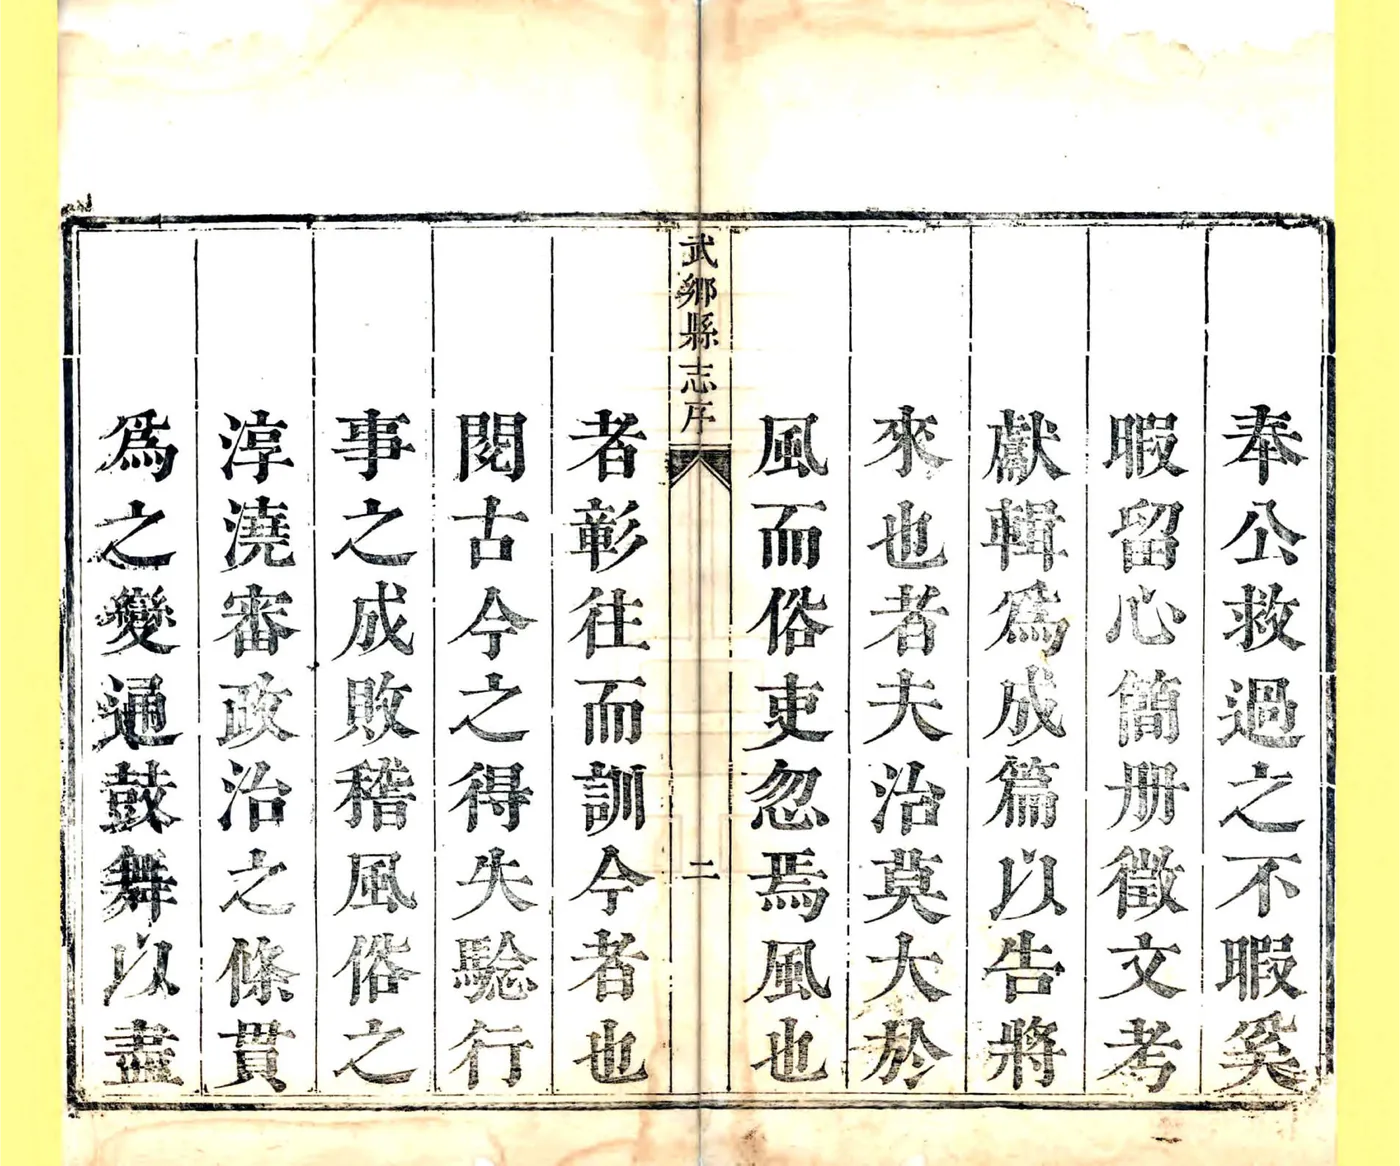 奉公救過之不暇奚
暇留心簡册徵文考
獻輯爲成篇以告將
來也者夫治莫大於
風而俗吏忽焉風也
武鄉縣志序
二
者彰往而訓今者也
閱古今之得失驗行
事之成敗稽風俗之
淳澆審政治之條貫
爲之變通鼓舞以盡